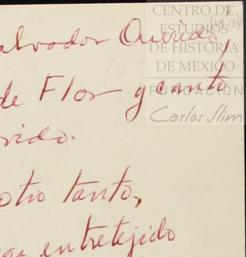 CENTRO DE
ESTUDIOS
DE HISTORIA
DE MEXICO
FUNDACIÓN
Carlos Slim
alvador Querido,
de Flor y canto
rido.
otro tanto,
entretejido